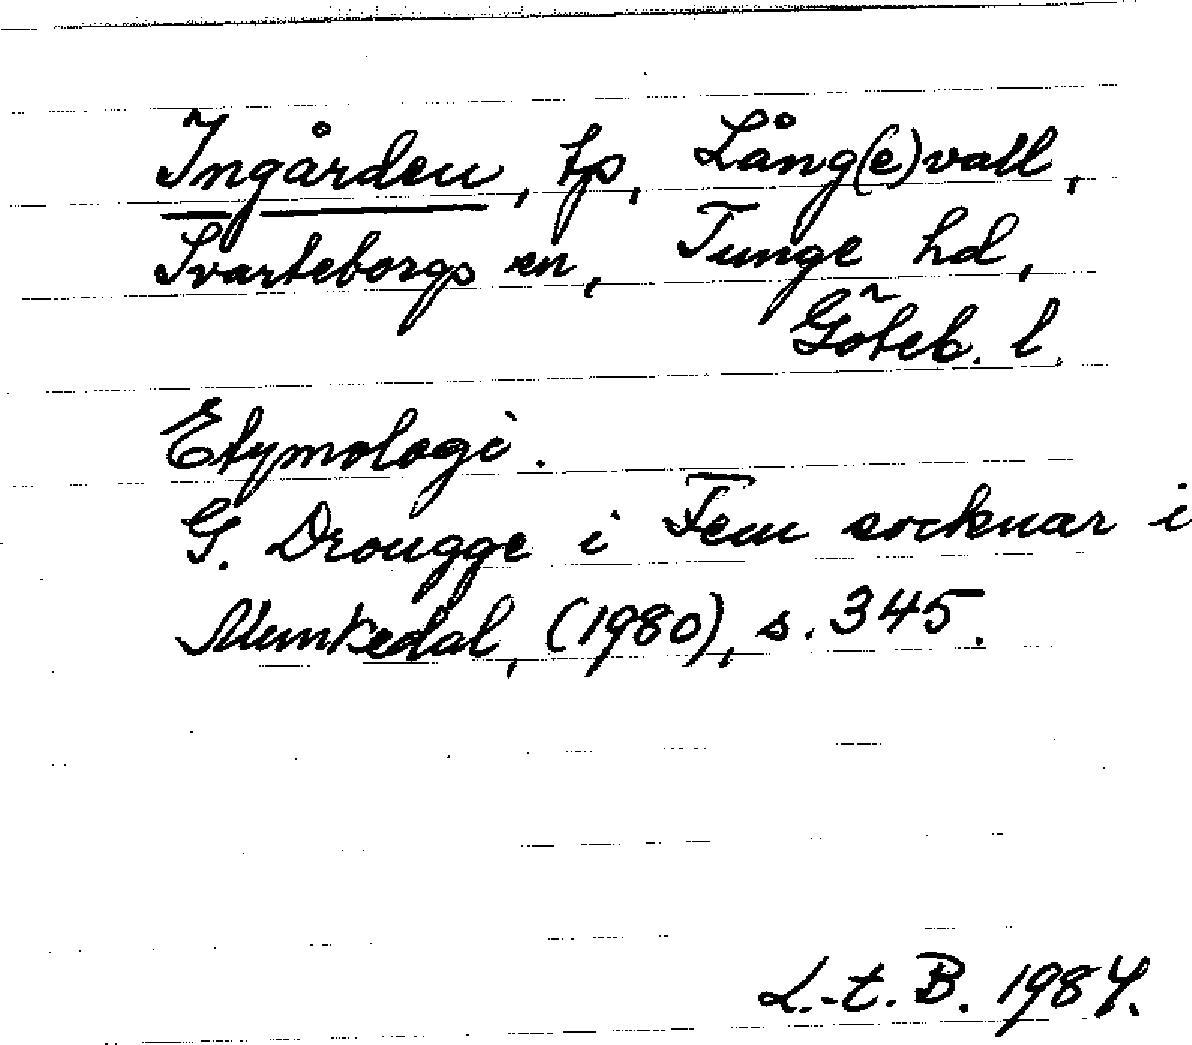 Ingården, tp, Lång(e)vall,
Svarteborgs sn, Tunge hd,
Göteb. l.
Etymologi.
G. Drougge i Fem socknar i
Munkedal, (1980), s. 345.
L.-t. B. 1984.